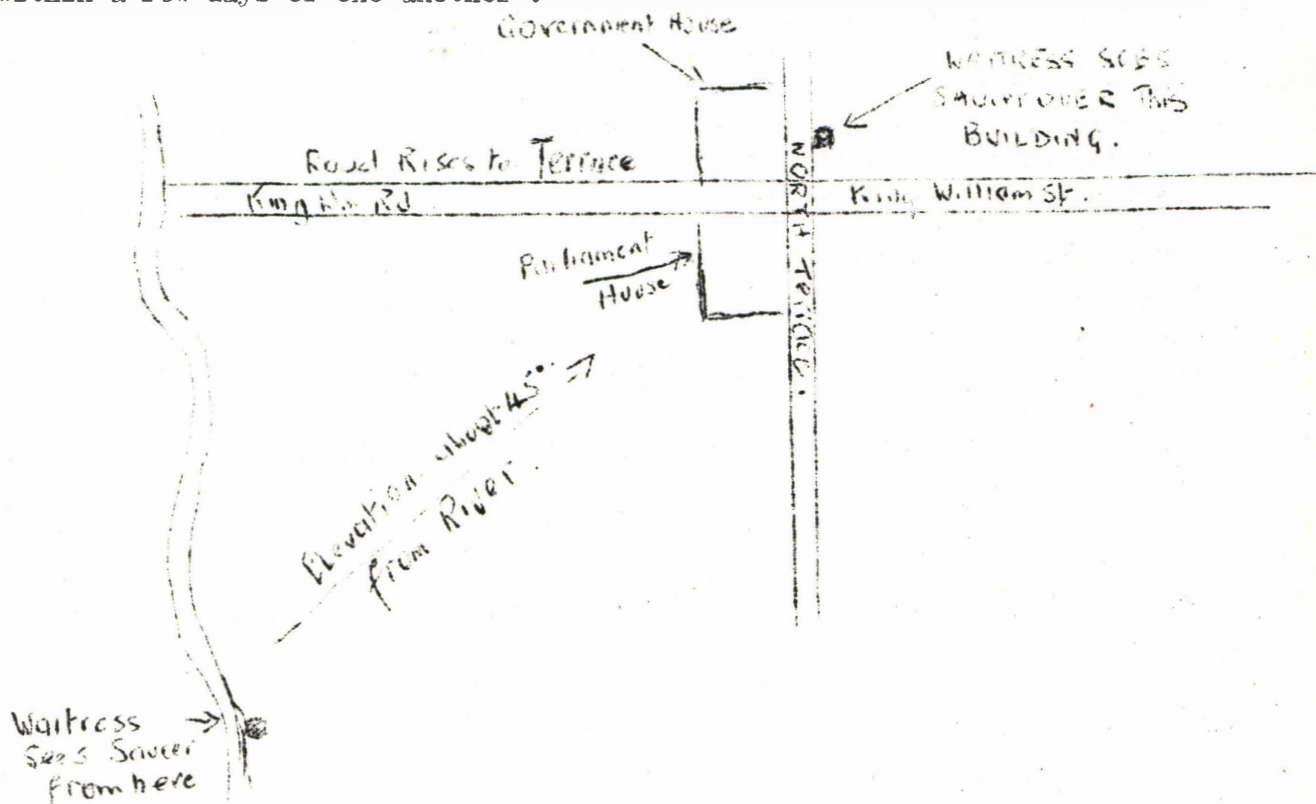 within a few days of one another".
Government House
WAITRESS SEES
SAUCER OVER THIS
BUILDING.
Road Rises to Terrace
King Wm Rd
King William St.
NORTH TERRACE.
Parliament
House
Elevation about 45°
from River.
Waitress
Sees Saucer
from here